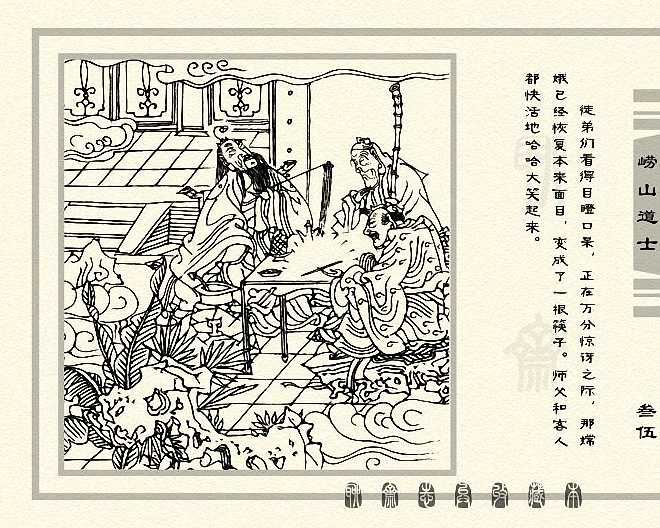 徒弟们看得目瞪口呆，正在万分惊讶之际，那嫦
娥已经恢复本来面目，变成了一根筷子。师父和客人
都快活地哈哈大笑起来。
崂山道士
叁伍